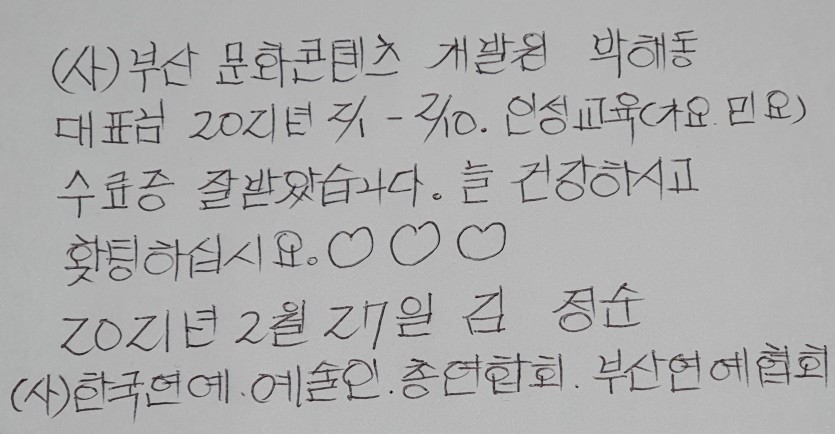 (사)부산 문화콘텐츠 개발원 박해동
대표님 2021년 2/1 - 2/10. 인성교육(가요. 민요)
수료증 잘받았습니다. 늘 건강하시고
홧팅하십시요.♡♡♡
2021년 2월 27일 김 정순
(사)한국연예.예술인.총연합회.부산연예협회